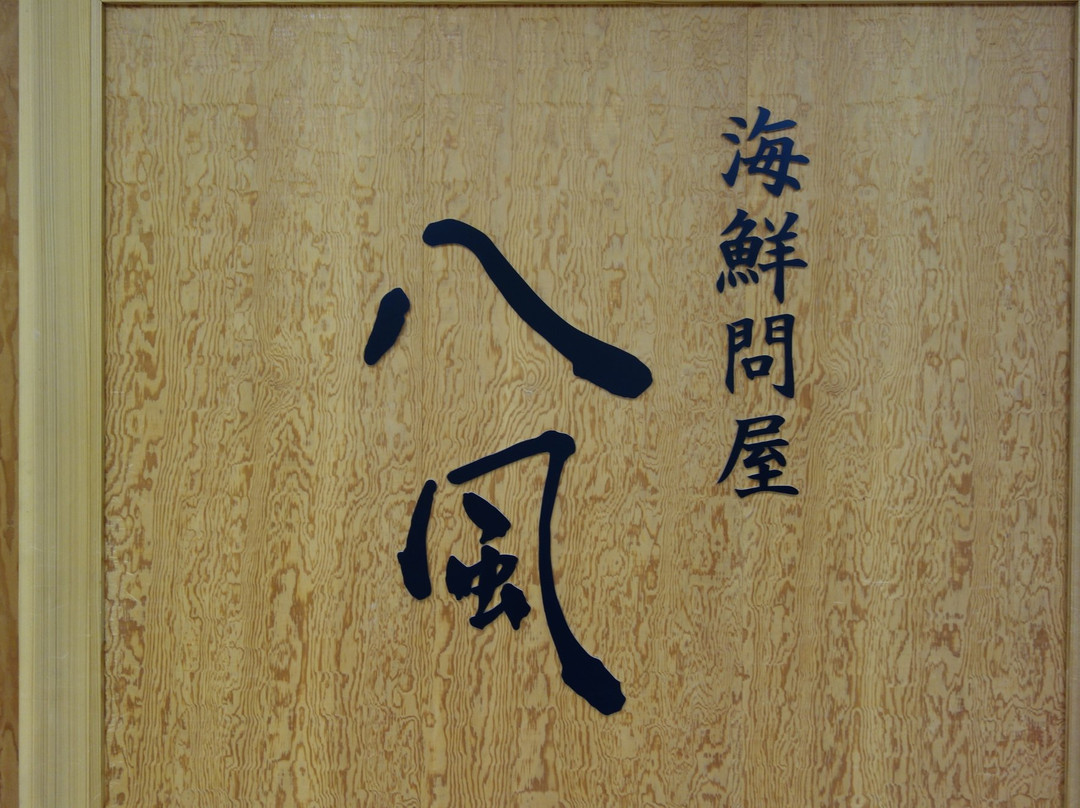 海鮮問屋
八風